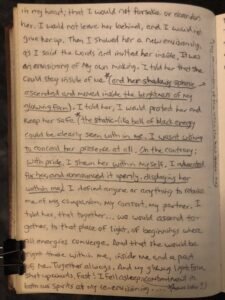 in my heart, that I would not forsake or abandon
her. I would not leave her behind, and I would not
give her up. Then I showed her a new envisioning,
as I said the words and invited her inside, It was
an envisioning of my own making. I told her that she
could stay inside of me (and her shadowy sphere
ascended and moved inside the brightness of my
glowing form). I told her, I would protect her and
keep her safe (the static-like ball of black energy
could be clearly seen within me. I wasn't trying
to conceal her presence at all. On the contrary,
with pride, I shown her within myself, I advocated
for her, and announced it openly, displaying her
within me). I defied anyone or anything to retake
me of my companion, my comfort, my partner. I
told her, that together... we would ascend to-
gether, to that place of light, of beginnings where
all energies converge. And that she would be
right there within me, inside me and a part
of me. Together always. And my glowing light form
shot upwards, fast! I fell asleep
both us Spirits at my re-envisioning....